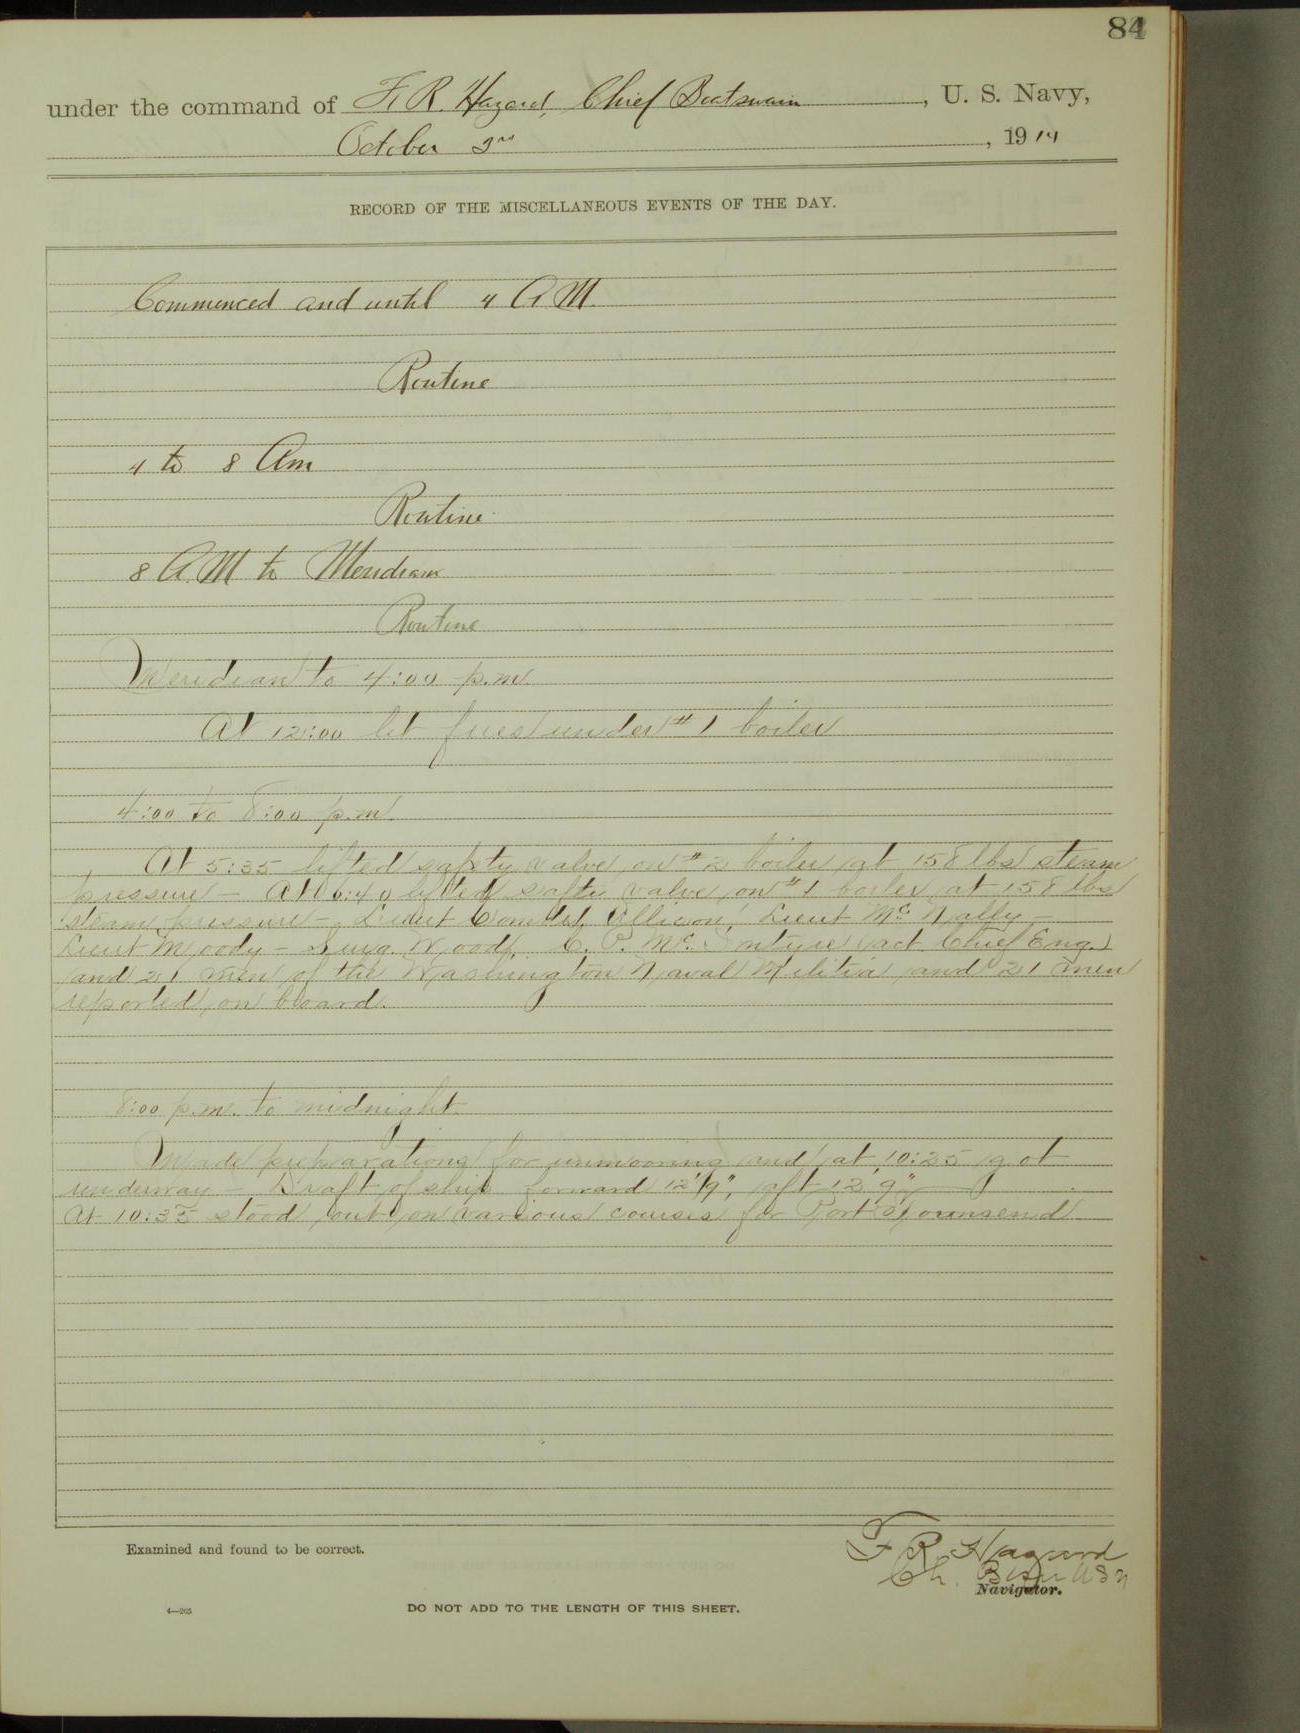 84
under the command of F. R. Hazard, Chief Boatswain, U. S. Navy,
October 2nd, 1914
RECORD OF THE MISCELLANEOUS EVENTS OF THE DAY.
Commenced and until 4 A.M.
Routine
4 to 8 Am
Routine
8 A.M to Meridian
Routine
Meridian to 4:00 p.m.
At 12:00 lit fires under #1 boiler
4:00 to 8:00 p.m.
At 5:35 lifted safety valve on #2 boiler at 158 lbs steam
pressure — At 6:40 lifted safty valve on #1 boiler at 158 lbs
steam pressure — Lieut Lieut Mc Nally
Lieut Moody — Surg. Wood, C. P. Mc Intyre (act. Chief Eng.)
and 21 men of the Washington Naval Militia and 21 men
reported on board.
8:00 p.m. to midnight
Made preparations for unmooring and at 10:25 got
underway — Draft of ship forward 12'9", aft 12'9"
At 10:35 stood out on various courses for Port Townsend
Examined and found to be correct.
F R Hazard
Ch. Btsn USN
Navigator.
4—265
DO NOT ADD TO THE LENGTH OF THIS SHEET.